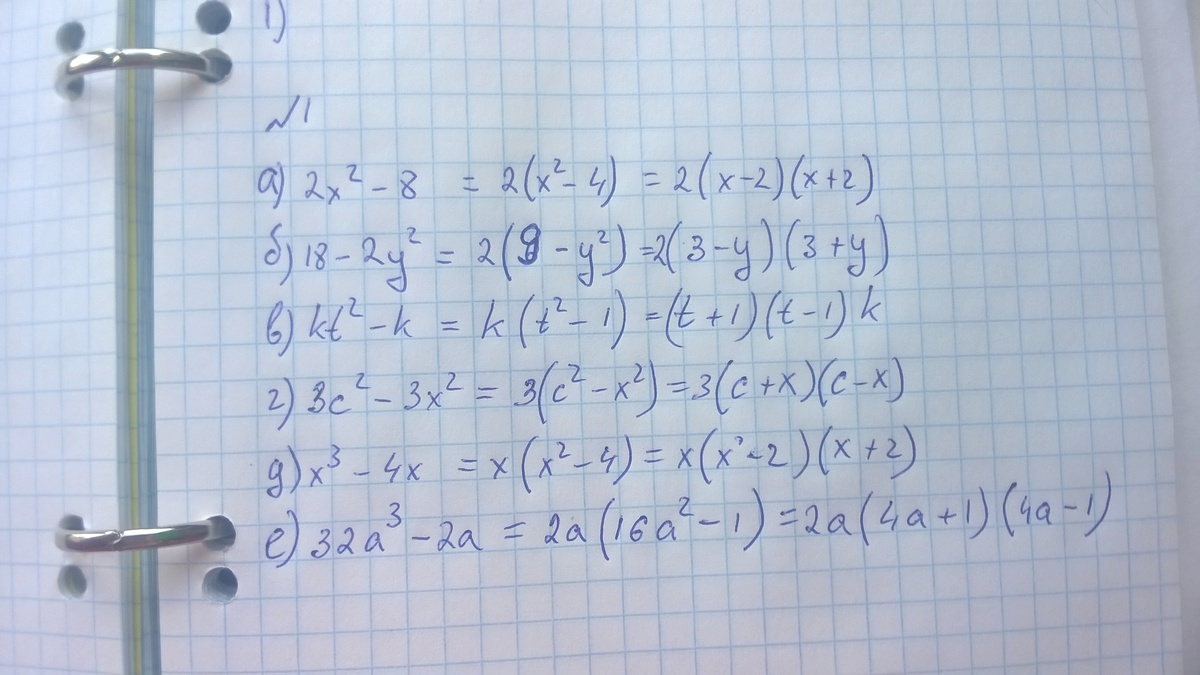 1)
№1
а) 2x² - 8 = 2(x² - 4) = 2(x-2)(x+2)
б) 18 - 2y² = 2(9 - y²) = 2(3-y)(3+y)
в) kt² - k = k(t² - 1) = (t+1)(t-1)k
г) 3c² - 3x² = 3(c² - x²) = 3(c+x)(c-x)
д) x³ - 4x = x(x² - 4) = x(x-2)(x+2)
е) 32a³ - 2a = 2a(16a² - 1) = 2a(4a+1)(4a-1)